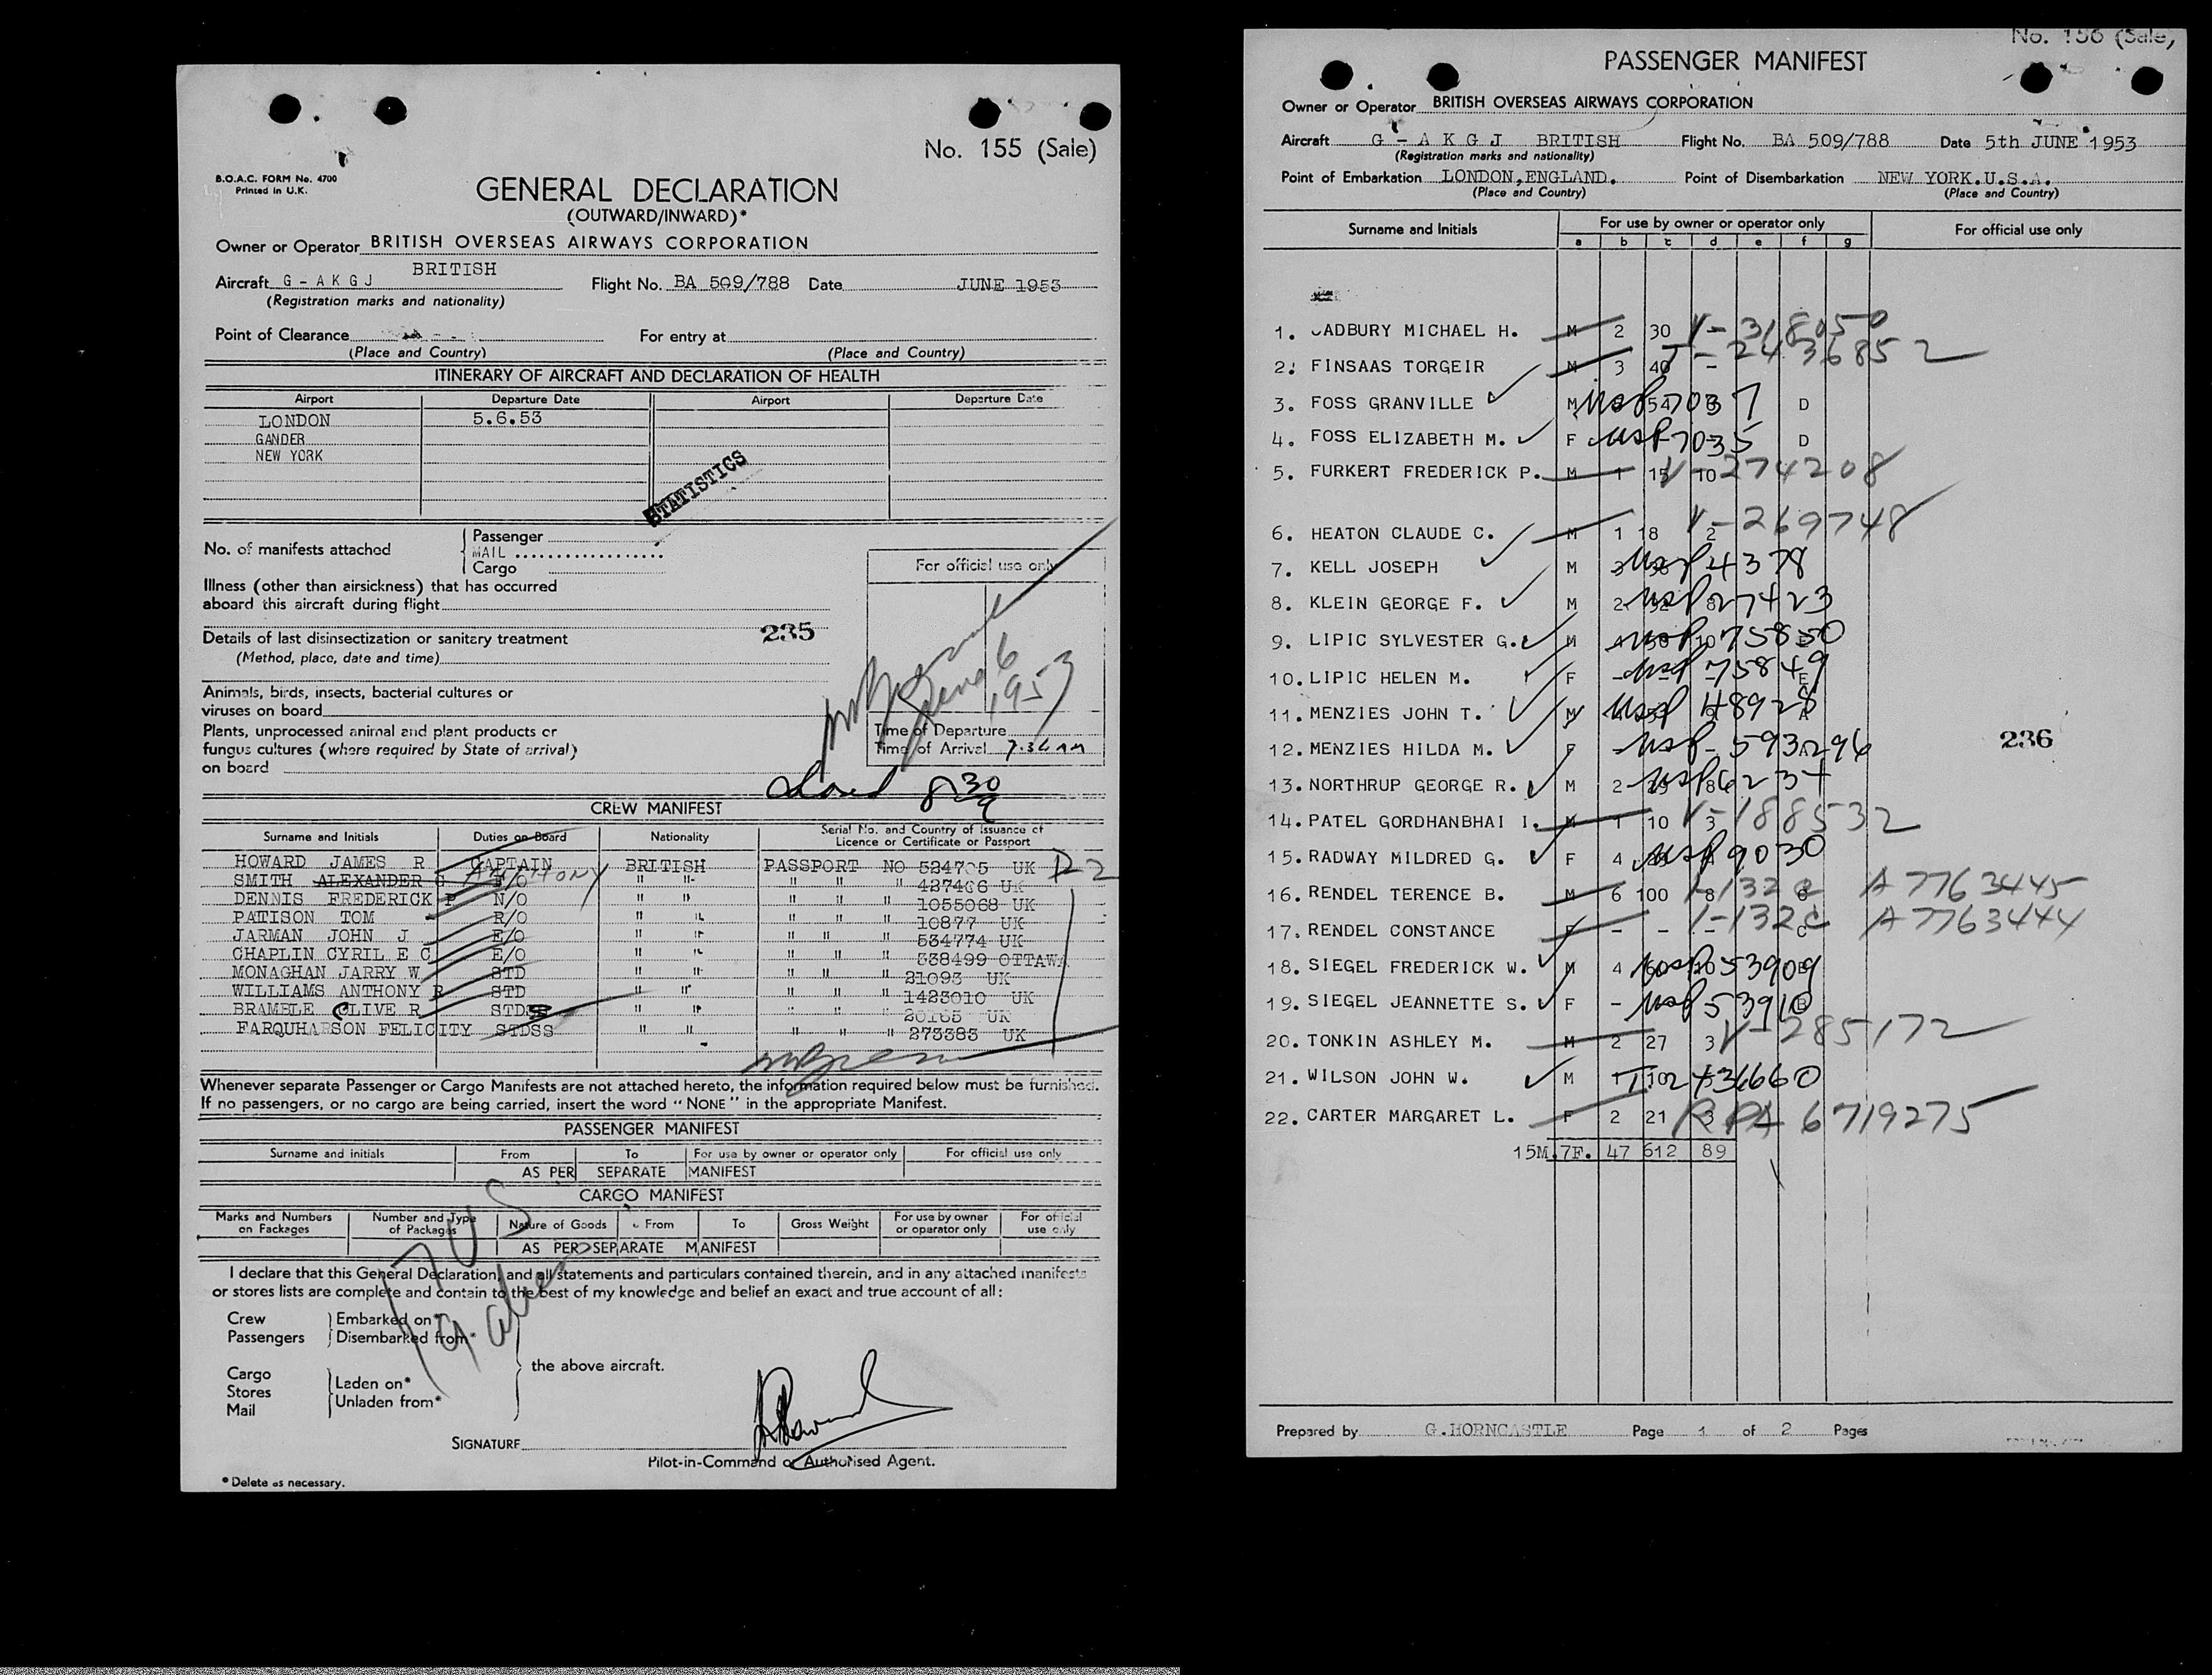 No. 155 (Sale)
B.O.A.C. FORM No. 4700
Printed in U.K.
GENERAL DECLARATION
(OUTWARD/INWARD)*
Owner or Operator BRITISH OVERSEAS AIRWAYS CORPORATION
Aircraft G - A K G J BRITISH Flight No. BA 509/788 Date JUNE 1953
(Registration marks and nationality)
Point of Clearance For entry at
(Place and Country) (Place and Country)
ITINERARY OF AIRCRAFT AND DECLARATION OF HEALTH
Airport Departure Date Airport Departure Date
LONDON 5.6.53
GANDER
NEW YORK
STATISTICS
No. of manifests attached
Passenger
MAIL
Cargo
For official use only
Illness (other than airsickness) that has occurred
aboard this aircraft during flight
Details of last disinsectization or sanitary treatment 235
(Method, place, date and time)
June 6
1953
Animals, birds, insects, bacterial cultures or
viruses on board
Plants, unprocessed animal and plant products or
fungus cultures (where required by State of arrival)
on board
Time of Departure
Time of Arrival 7:36 AM
CREW MANIFEST
Surname and Initials Duties on Board Nationality Serial No. and Country of Issuance of
Licence or Certificate or Passport
HOWARD JAMES R CAPTAIN BRITISH PASSPORT NO UK
SMITH ALEXANDER G ANTHONY F/O " " " " " UK
DENNIS FREDERICK P N/O " " " " " 1055068 UK
PATISON TOM R/O " " " " " 10877 UK
JARMAN JOHN J E/O " " " " " 534774 UK
CHAPLIN CYRIL E C E/O " " " " " 338499 OTTAWA
MONAGHAN JARRY W STD " " " " " 21093 UK
WILLIAMS ANTHONY R STD " " " " " 1423010 UK
BRAMBLE CLIVE R STD " " " " " 20165 UK
FARQUHARSON FELICITY STDSS " " " " " 273383 UK
Whenever separate Passenger or Cargo Manifests are not attached hereto, the information required below must be furnished.
If no passengers, or no cargo are being carried, insert the word "NONE" in the appropriate Manifest.
PASSENGER MANIFEST
Surname and initials From To For use by owner or operator only For official use only
AS PER SEPARATE MANIFEST
CARGO MANIFEST
Marks and Numbers on Packages Number and Type of Packages Nature of Goods From To Gross Weight For use by owner or operator only For official use only
AS PER SEPARATE MANIFEST
I declare that this General Declaration, and all statements and particulars contained therein, and in any attached manifests
or stores lists are complete and contain to the best of my knowledge and belief an exact and true account of all:
Crew Embarked on*
Passengers Disembarked from*
the above aircraft.
Cargo
Stores Laden on*
Mail Unladen from*
SIGNATURE
Pilot-in-Command or Authorised Agent.
* Delete as necessary.
No. 156 (Sale)
PASSENGER MANIFEST
Owner or Operator BRITISH OVERSEAS AIRWAYS CORPORATION
Aircraft G - A K G J BRITISH Flight No. BA 509/788 Date 5th JUNE 1953
(Registration marks and nationality)
Point of Embarkation LONDON, ENGLAND. Point of Disembarkation NEW YORK.U.S.A.
(Place and Country) (Place and Country)
Surname and Initials For use by owner or operator only For official use only
a b c d e f g
1. CADBURY MICHAEL H. M 2 30 V-318050
2. FINSAAS TORGEIR M 3 40 - 2436852
3. FOSS GRANVILLE M USP 7037 D
4. FOSS ELIZABETH M. F USP 7035 D
5. FURKERT FREDERICK P. M 1 15 10 V-274208
6. HEATON CLAUDE C. M 1 18 2 V-269748
7. KELL JOSEPH M 3 USP 4378
8. KLEIN GEORGE F. M 2 USP 27423
9. LIPIC SYLVESTER G. M 4 USP 75850
10. LIPIC HELEN M. F - USP 75849 E
11. MENZIES JOHN T. M USP 48928 A
12. MENZIES HILDA M. F - USP 593296
13. NORTHRUP GEORGE R. M 2 USP 6234
14. PATEL GORDHANBHAI I. M 1 10 3 V-188532
15. RADWAY MILDRED G. F 4 USP 9030
16. RENDEL TERENCE B. M 6 100 8 I-132c A7763445
17. RENDEL CONSTANCE F - - - I-132c C A7763444
18. SIEGEL FREDERICK W. M 4 USP 53909
19. SIEGEL JEANNETTE S. F - USP 53910
20. TONKIN ASHLEY M. M 2 27 3 V-285172
21. WILSON JOHN W. M 1 T102+36660
22. CARTER MARGARET L. F 2 21 3 6719275
15M.7F. 47 612 89
236
Prepared by G.HORNCASTLE Page 1 of 2 Pages